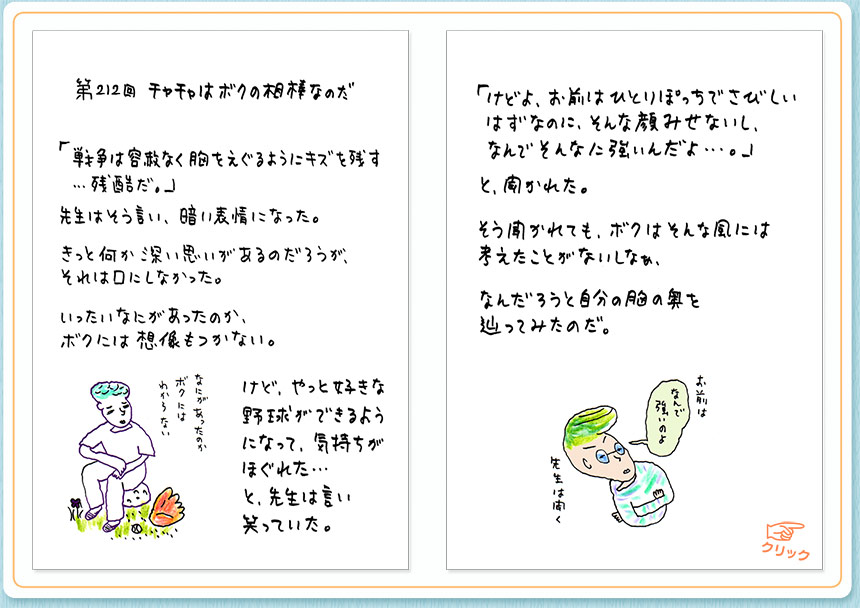 第212回 チャチャはボクの相棒なのだ
「戦争は容赦なく胸をえぐるようにキズを残す
…残酷だ。」
先生はそう言い、暗い表情になった。
きっと何か深い思いがあるのだろうが、
それは口にしなかった。
いったいなにがあったのか、
ボクには想像もつかない。
なにがあったのか
ボクには
わからない
けど、やっと好きな
野球ができるよう
になって、気持ちが
ほぐれた…
と、先生は言い
笑っていた。
「けどよ、お前はひとりぽっちでさびしい
はずなのに、そんな顔みせないし、
なんでそんなに強いんだよ…。」
と、聞かれた。
そう聞かれても、ボクはそんな風には
考えたことがないしなぁ、
なんだろうと自分の胸の奥を
辿ってみたのだ。
お前は
なんで
強いのよ
先生は聞く
クリック